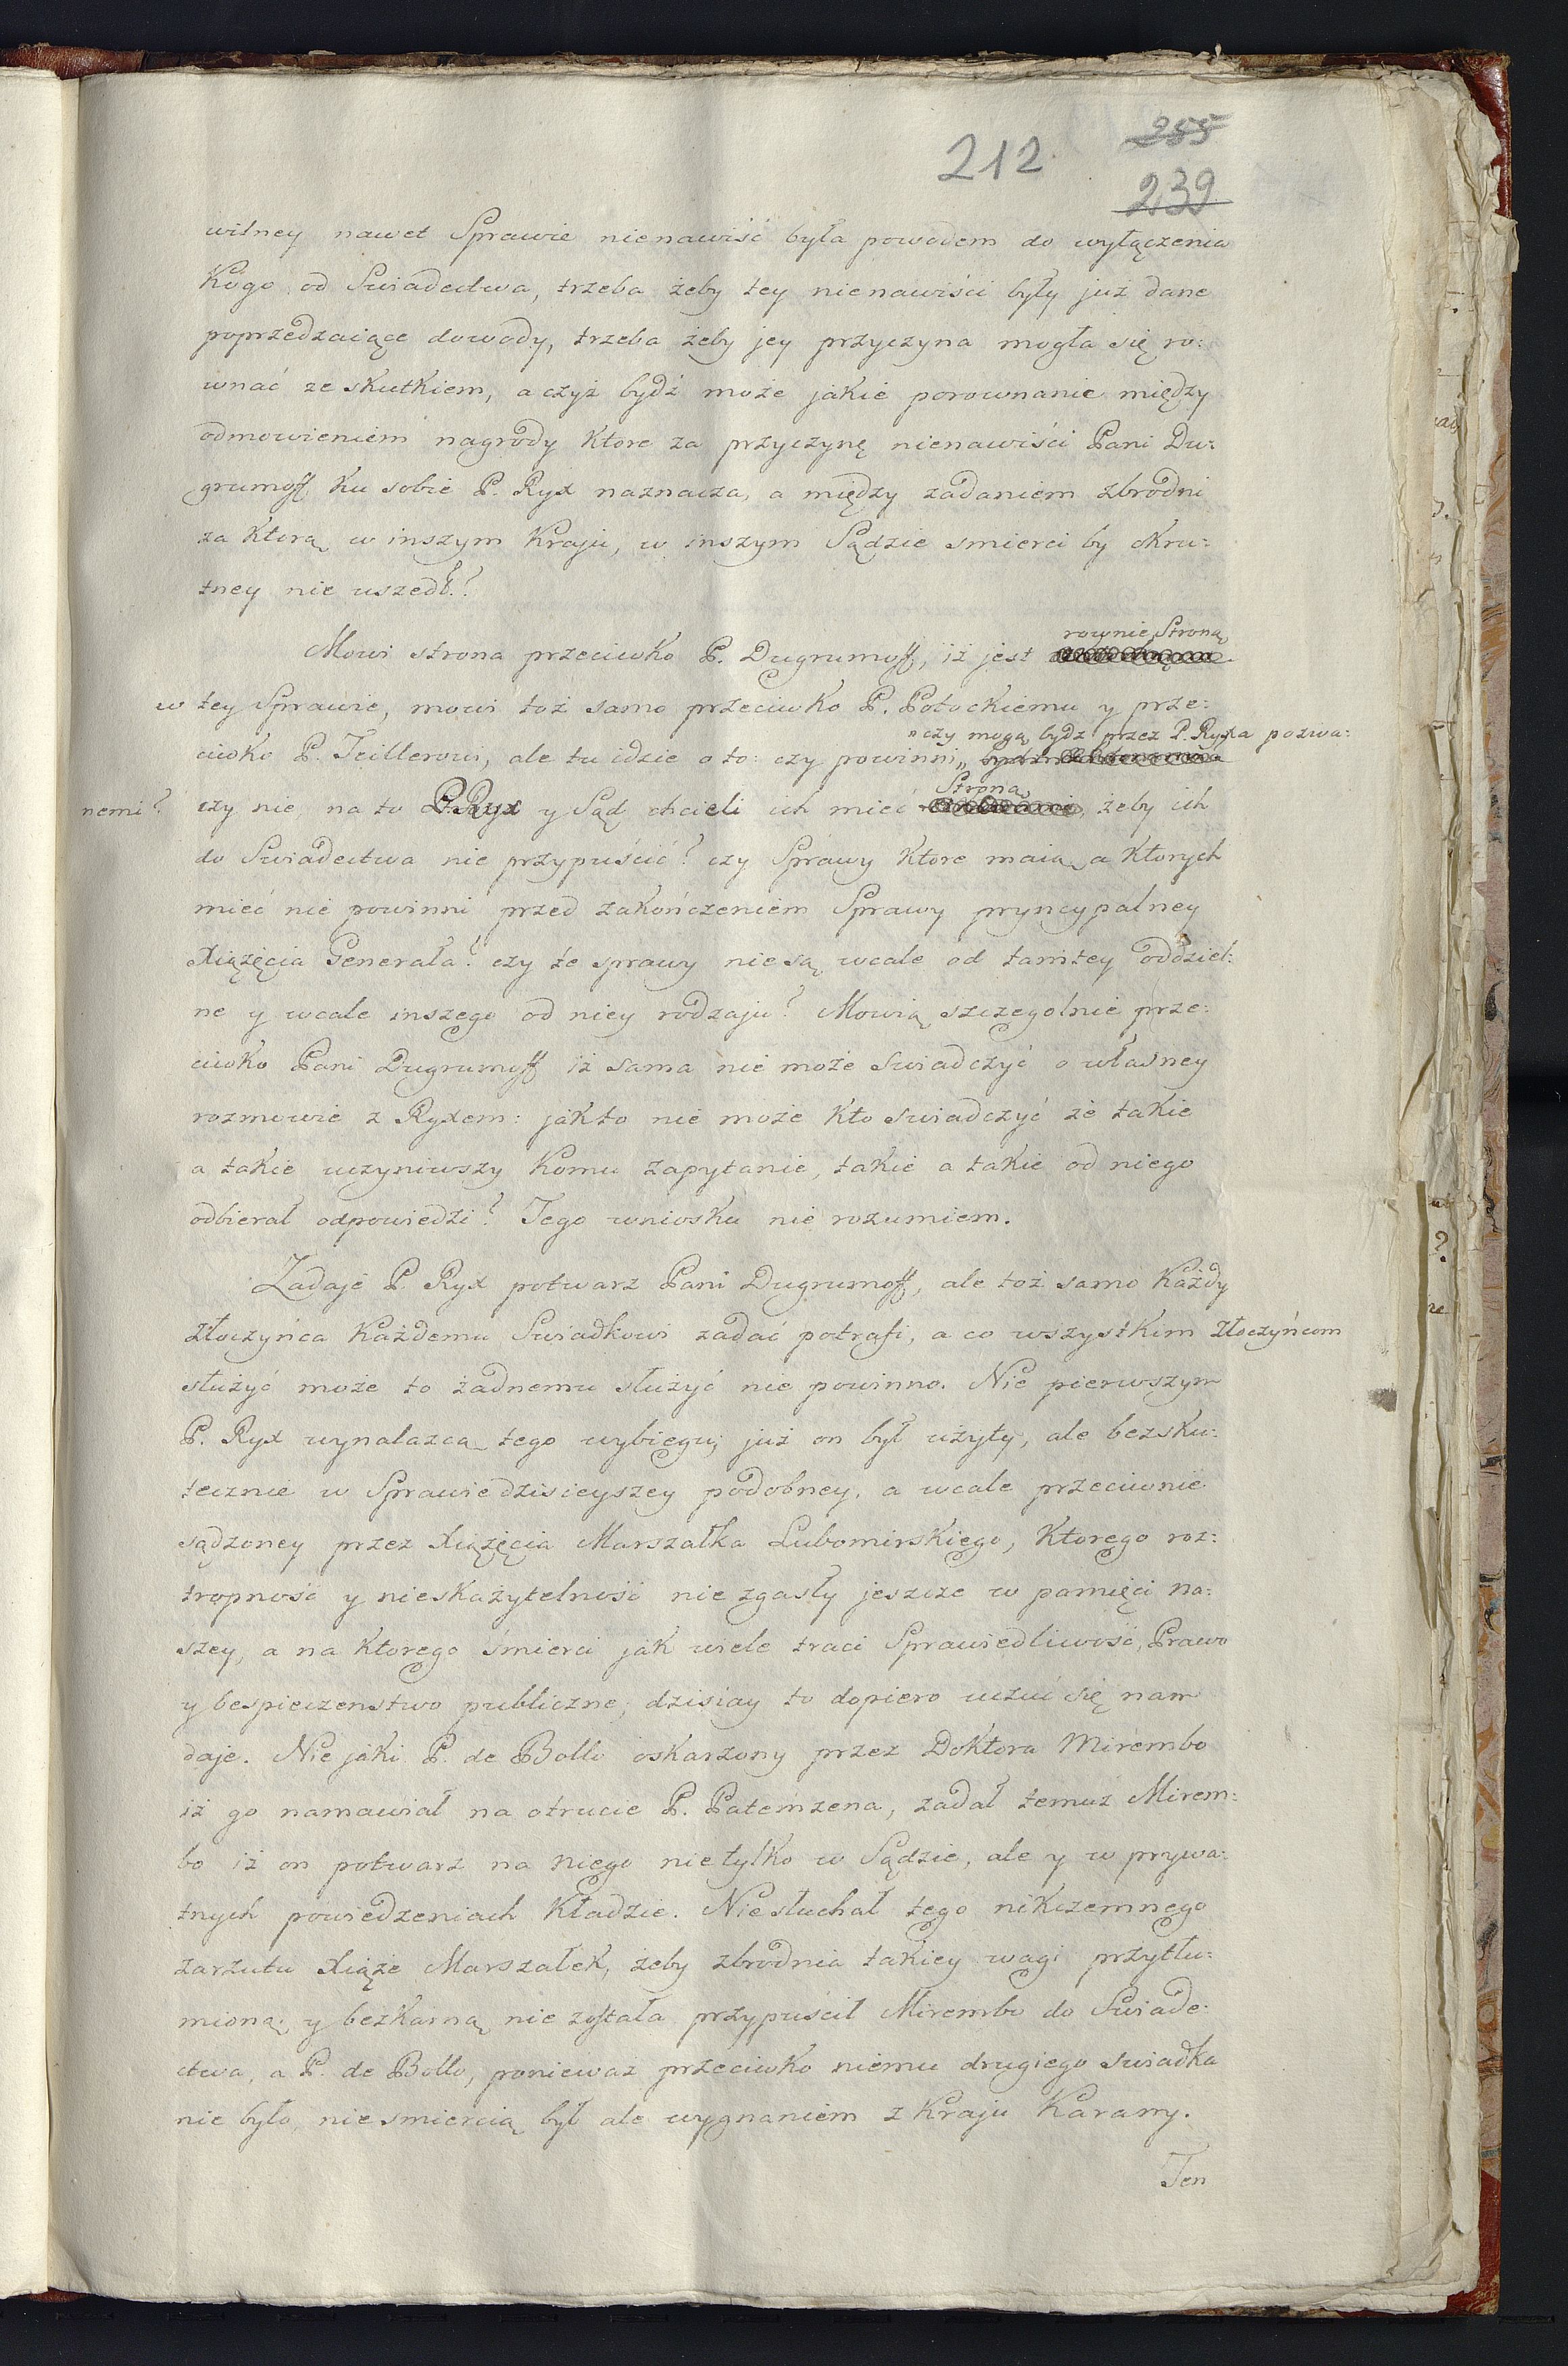 212
255
239
wilney nawet Sprawie nienawiść była powodem do wyłączenia
Kogo od Swiadectwa, trzeba żeby tey nienawiści były już dane
poprzedzaiące dowody, trzeba żeby jey przyczyna mogła się ro:
wnać ze skutkiem, a czyż bydź może jakie porownanie między
odmowieniem nagrody Ktore za przyczynę nienawiści Pani Du:
grumoff ku sobie P. Ryx naznacza, a między zadaniem zbrodni
za Ktorą w inszym Kraju, w inszym Sądzie smierci by okru:
tney nie uszedł?
rownie Stroną
Mowi strona przeciwko P. Dugrumoff, iż jest
w tey Sprawie, mowi toż samo przeciwko P. Potockiemu y prze:
„czy mogą bydz przez P. Ryxa pozwa:
ciwko P. Teillerowi, ale tu idzie o to: czy powinni„
Stroną
nemi? czy nie na to P. Ryx y Sąd chcieli ich mieć żeby ich
do Swiadectwa nie przypuścić? czy Sprawy Ktore maią, a Ktorych
mieć nie powinni przed zakończeniem Sprawy pryncypalney
Xiążęcia Generała? czy te sprawy nie są wcale od tamtey oddziel:
ne y wcale inszego od niey rodzaju? Mowią szczegolnie prze:
ciwko Pani Dugrumoff iż sama nie może swiadczyć o własney
rozmowie z Ryxem: jak to nie może Kto swiadczyć że takie
a takie uczyniwszy Komu zapytanie, takie a takie od niego
odbierał odpowiedzi? Tego wniosku nie rozumiem.
Zadaje P. Ryx potwarz Pani Dugrumoff, ale toż samo Każdy
złoczyńca Każdemu Swiadkowi zadać potrafi, a co wszystkim złoczyńcom
służyć może to żadnemu służyć nie powinno. Nie pierwszym
P. Ryx wynalazcą tego wybiegu; już on był użyty, ale bezsku:
tecznie w Sprawie dzisieyszey podobney, a wcale przeciwnie
sądzoney przez Xiążęcia Marszałka Lubomirskiego, Ktorego roz:
tropność y nieskażytelność nie zgasły jeszcze w pamięci na:
szey, a na Ktorego śmierci jak wiele traci Sprawiedliwość, Prawo
y bespieczenstwo publiczne, dzisiay to dopiero uczuć się nam
daje. Nie jaki P. de Bollo oskarzony przez Doktora Mirembo
iż go namawiał na otrucie P. Patemzena, zadał temuż Mirem:
bo iż on potwarz na niego nie tylko w Sądzie, ale y w prywa:
tnych powiedzeniach Kładzie. Nie słuchał tego nikczemnego
zarzutu Xiąże Marszałek, żeby zbrodnia takiey wagi przytłu:
mioną y bezkarną nie została przypuścił Mirembo do Swiade:
ctwa, a P. de Bollo, ponieważ przeciwko niemu drugiego swiadka
nie było, nie smiercią był ale wygnaniem z Kraju Karany.
Ten